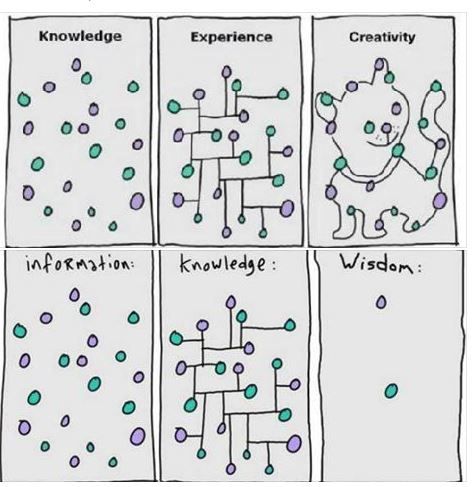 Knowledge
Experience
Creativity
information:
Knowledge:
Wisdom: